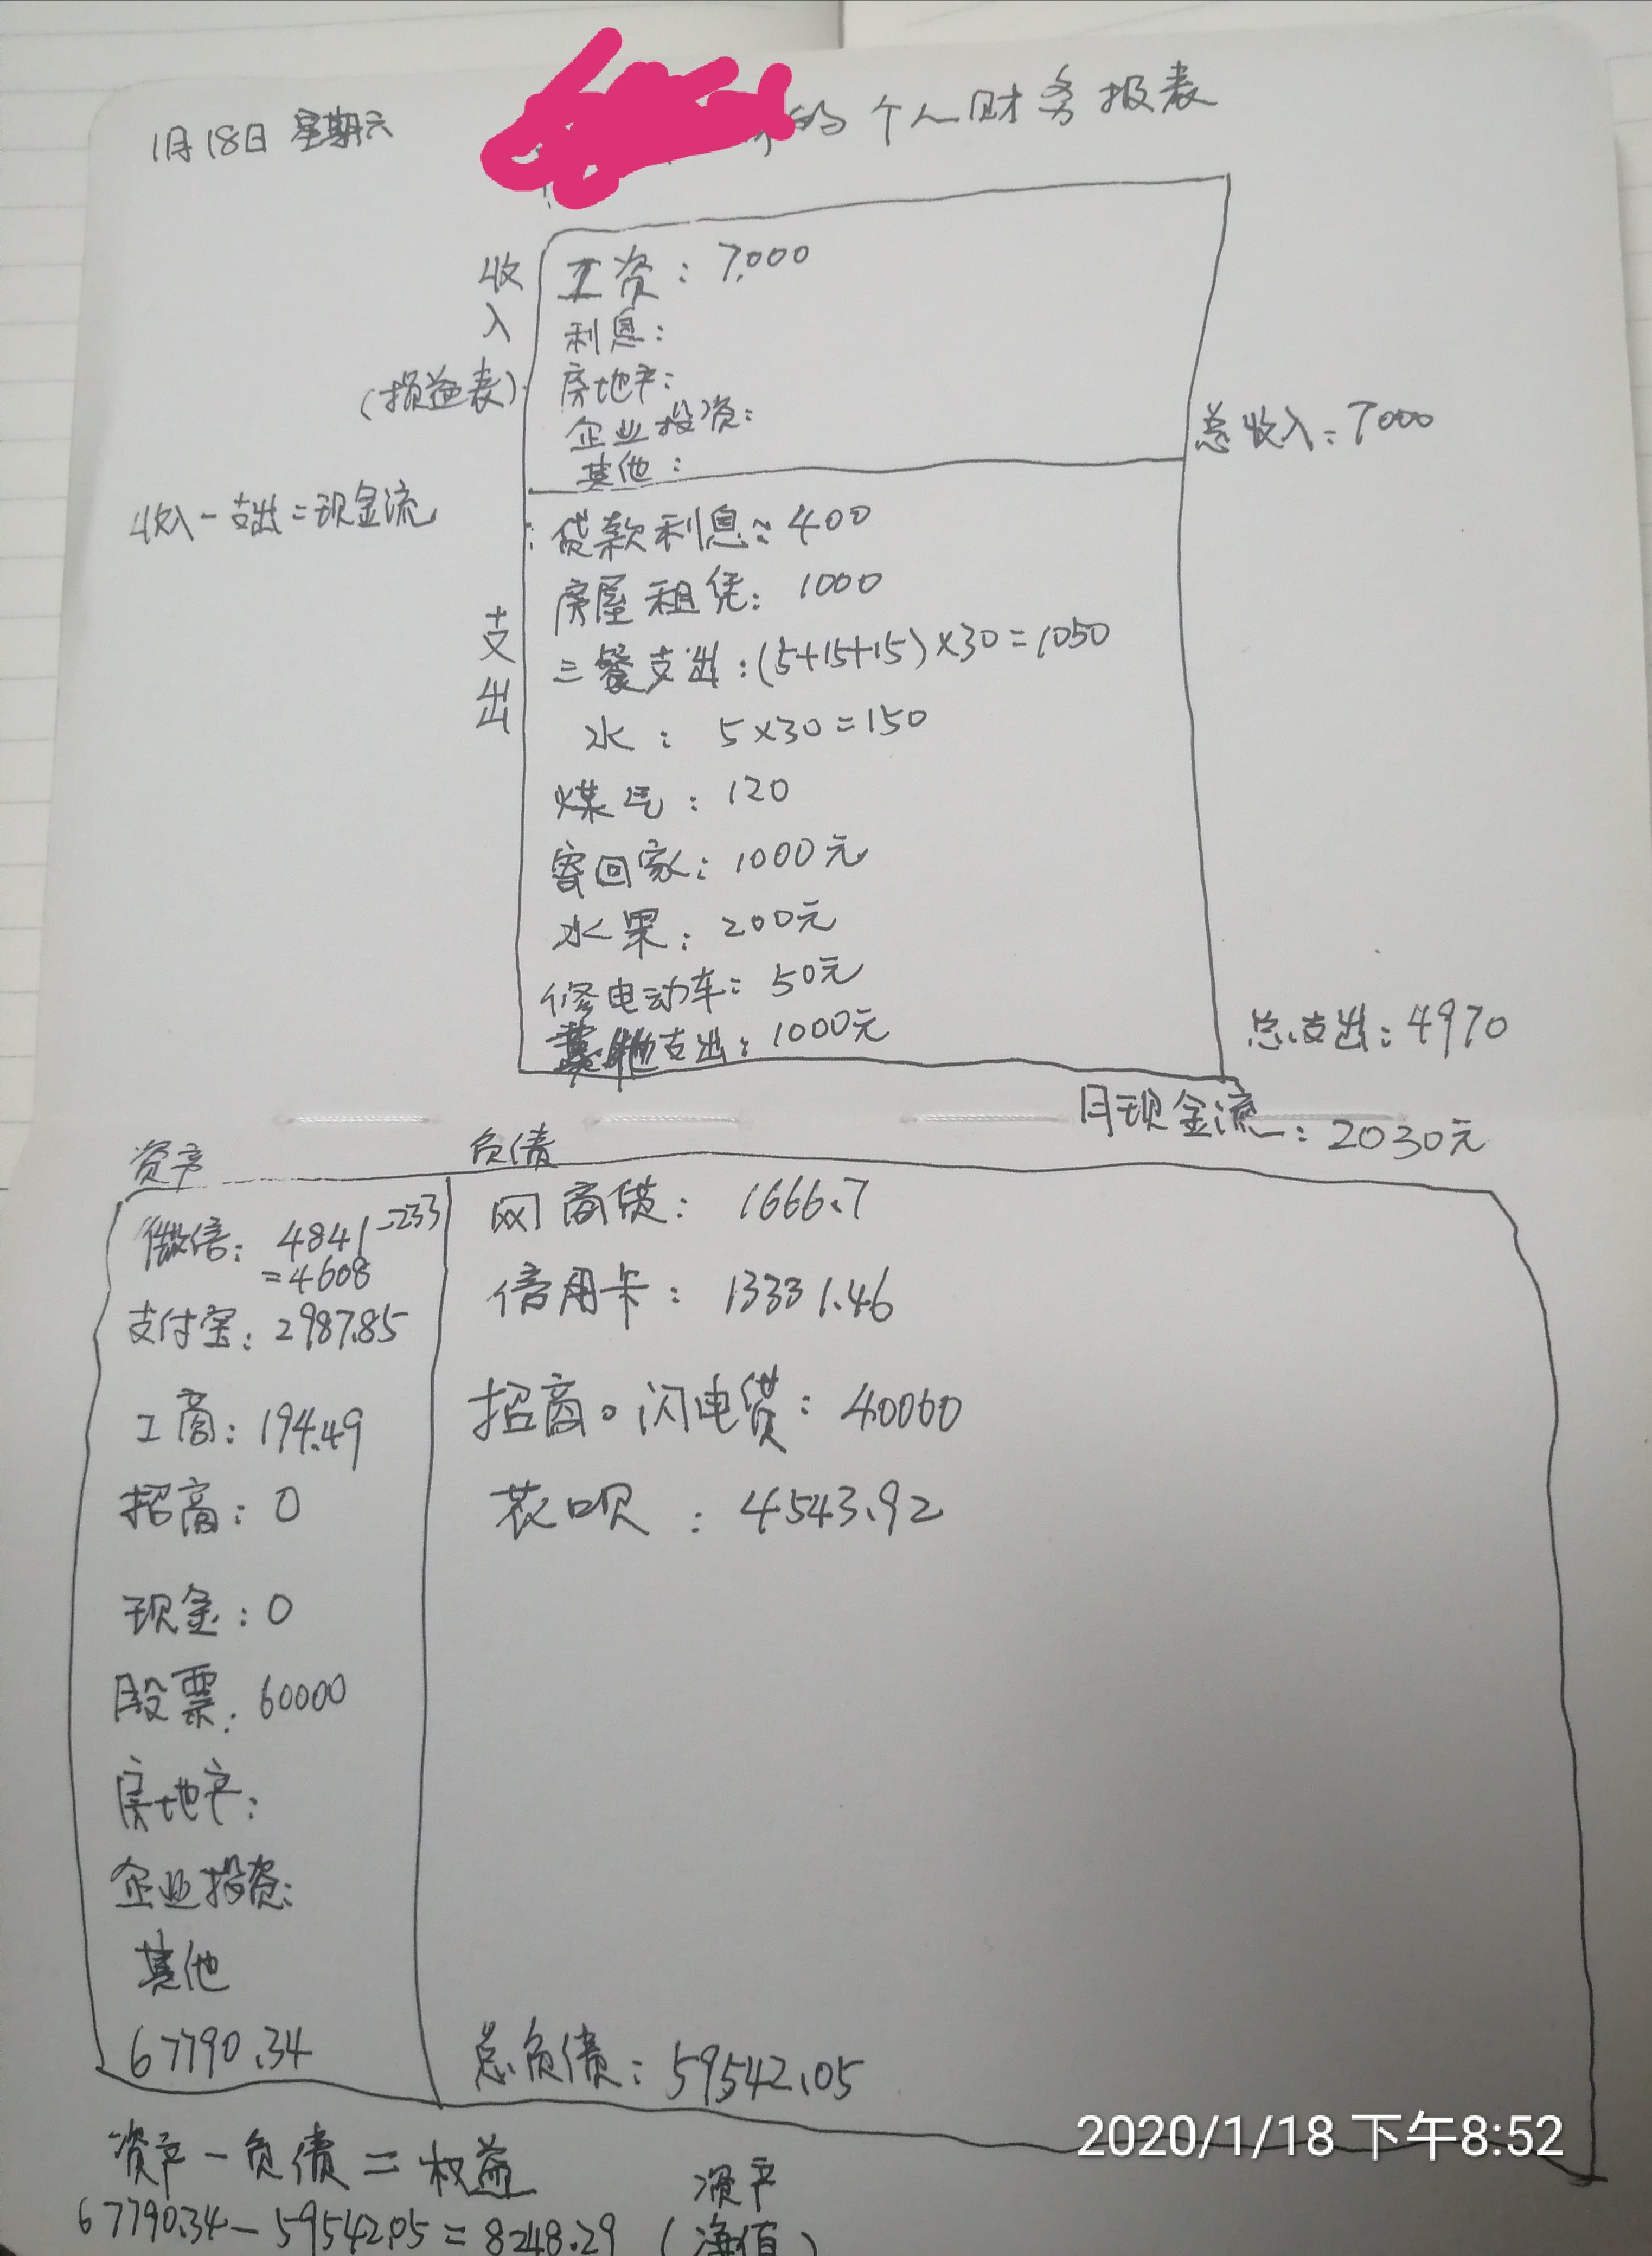 1月18日 星期六
的个人财务报表
收入
(损益表)
工资：7,000
利息：
房地产：
企业投资：
其他：
总收入：7000
收入-支出=现金流
支出
贷款利息：400
房屋租凭：1000
三餐支出：(5+15+15)×30=1050
水：5×30=150
煤气：120
寄回家：1000元
水果：200元
修电动车：50元
其他支出：1000元
总支出：4970
月现金流：2030元
资产
微信：4841-233
=4608
支付宝：2987.85
工商：194.49
招商：0
现金：0
股票：60000
房地产：
企业投资：
其他
67790.34
负债
网商贷：1666.7
信用卡：13331.46
招商。闪电贷：40000
花呗：4543.92
总负债：59542.05
资产-负债=权益
67790.34-59542.05=8248.29
资产
(净值)
2020/1/18 下午8:52